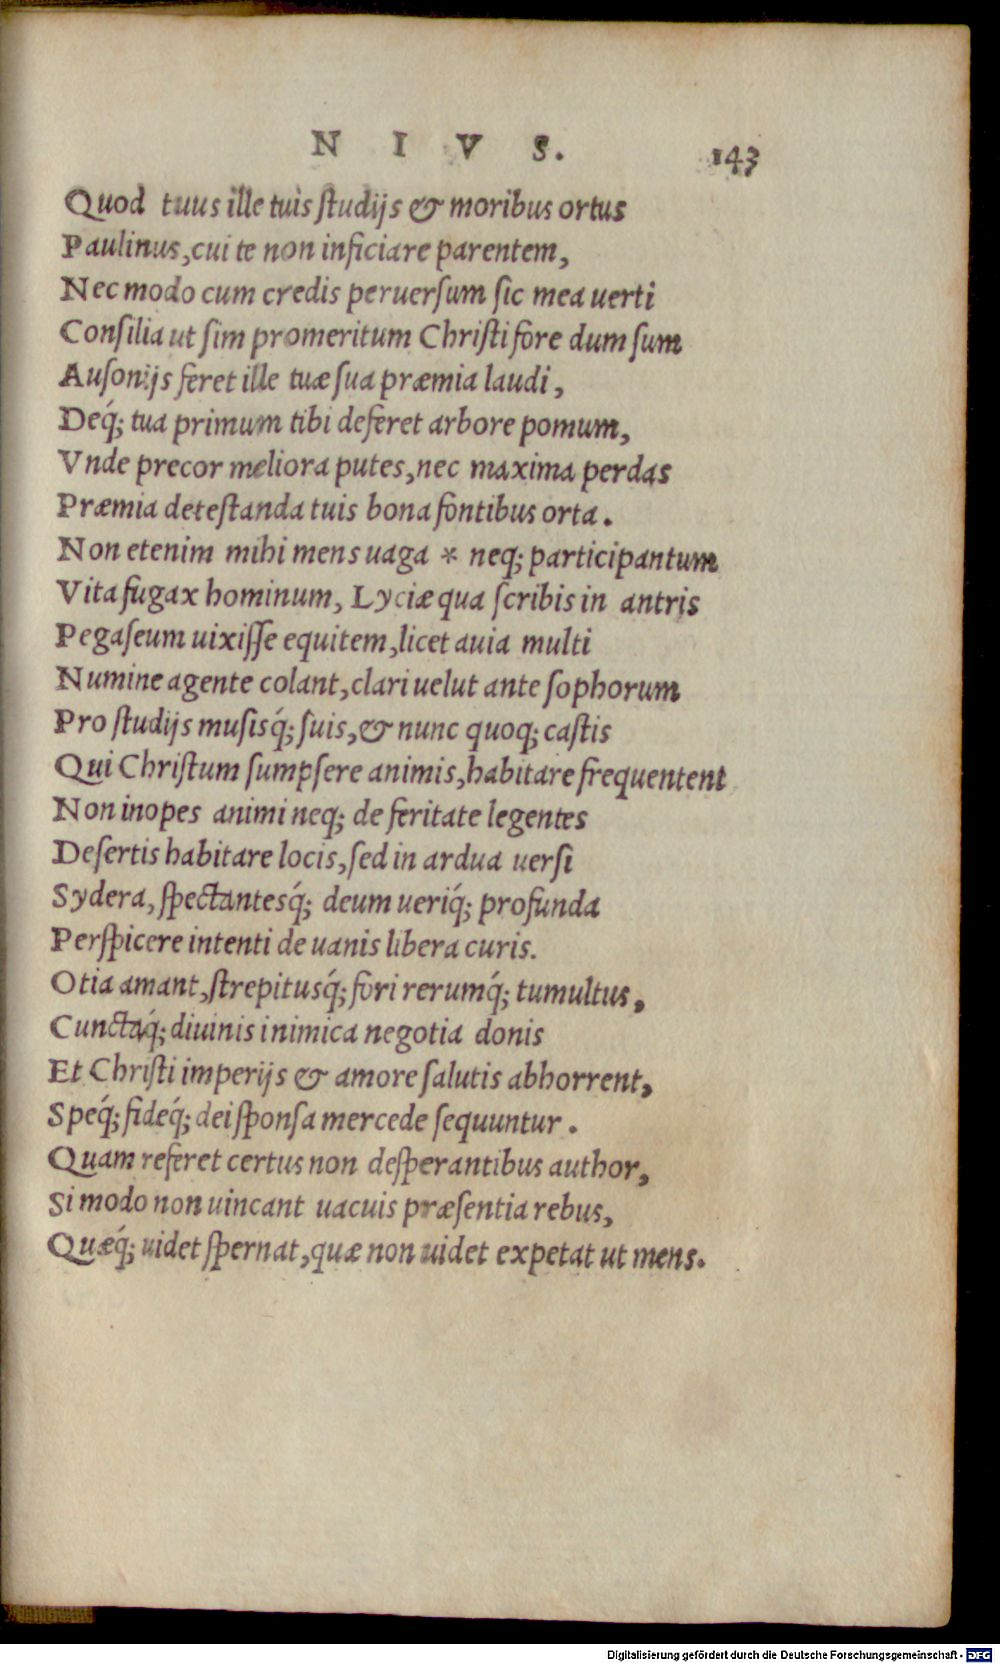 N I V S.
143
Quod tuus ille tuis ſtudijs & moribus ortus
Paulinus, cui te non inficiare parentem,
Nec modo cum credis peruerſum ſic mea uerti
Conſilia ut ſim promeritum Chriſti fore dum ſum
Auſonijs feret ille tuæ ſua præmia laudi,
Deq́; tua primum tibi deferet arbore pomum,
Vnde precor meliora putes, nec maxima perdas
Præmia deteſtanda tuis bona fontibus orta.
Non etenim mihi mens uaga * neq; participantum
Vita fugax hominum, Lyciæ qua ſcribis in antris
Pegaſeum uixiſſe equitem, licet auia multi
Numine agente colant, clari uelut ante ſophorum
Pro ſtudijs muſisq́; ſuis, & nunc quoq; caſtis
Qui Chriſtum ſumpſere animis, habitare frequentent
Non inopes animi neq; de feritate legentes
Deſertis habitare locis, ſed in ardua uerſi
Sydera, ſpectantesq́; deum ueriq́; profunda
Perſpicere intenti de uanis libera curis.
Otia amant, ſtrepitusq́; fori rerumq́; tumultus,
Cunctaq́; diuinis inimica negotia donis
Et Chriſti imperijs & amore ſalutis abhorrent,
Speq́; fideq́; dei ſponſa mercede ſequuntur.
Quam referet certus non deſperantibus author,
Si modo non uincant uacuis præſentia rebus,
Quæq́; uidet ſpernat, quæ non uidet expetat ut mens.
Digitalisierung gefördert durch die Deutsche Forschungsgemeinschaft - DFG